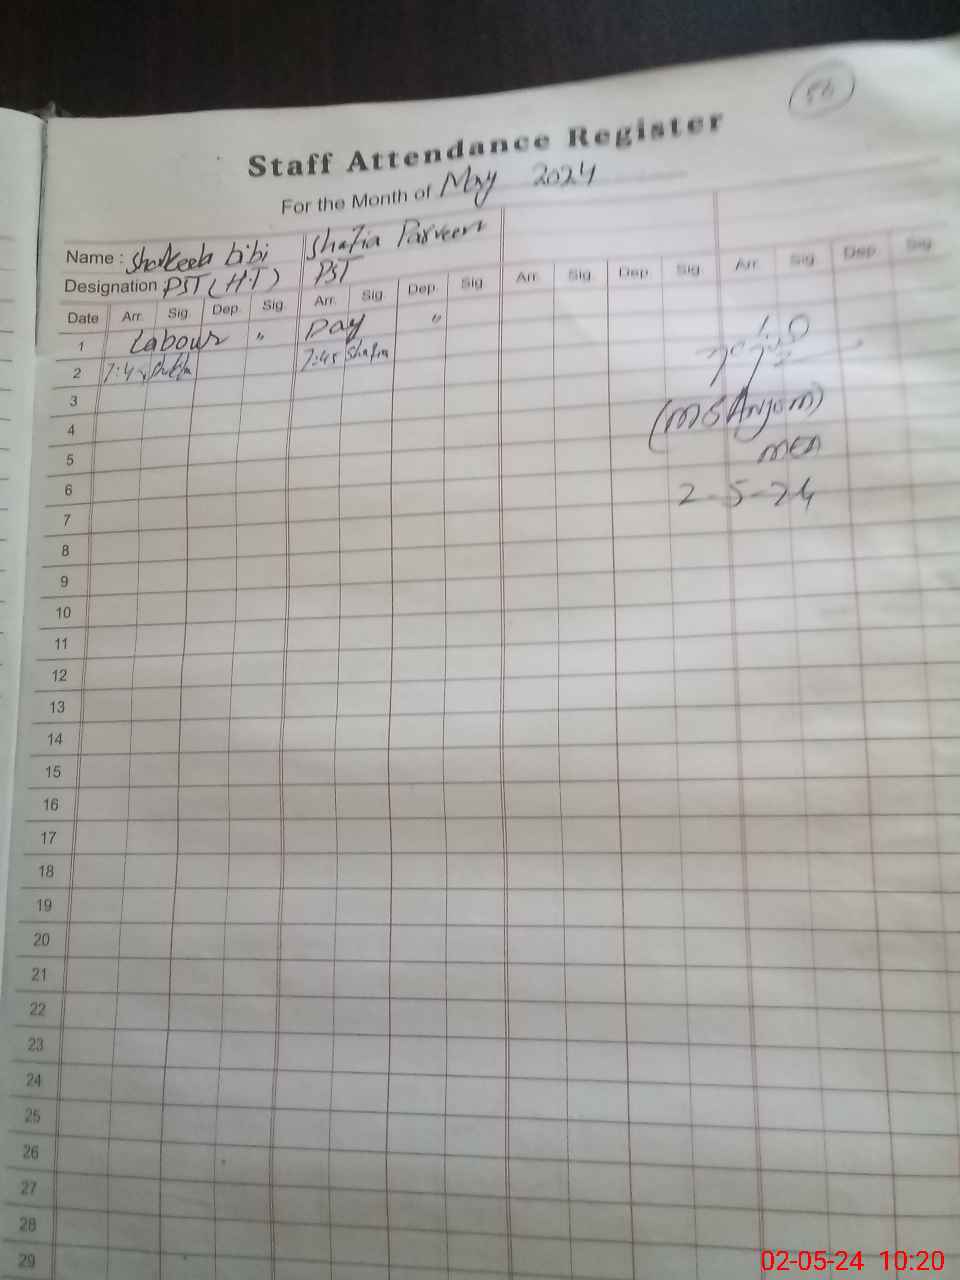 Staff Attendance Register
For the Month of May 2024
Name : bibi Shazia Parveen
Designation : PST (H.T) PST
Date Arr. Sig. Dep. Sig. Arr. Sig. Dep. Sig. Arr. Sig. Dep. Sig. Arr. Sig. Dep. Sig.
1 Labour " Day "
2 7:45 Shazia
3
(MS Anjum)
4
5
6
2-5-24
7
8
9
10
11
12
13
14
15
16
17
18
19
20
21
22
23
24
25
26
27
28
29
02-05-24 10:20